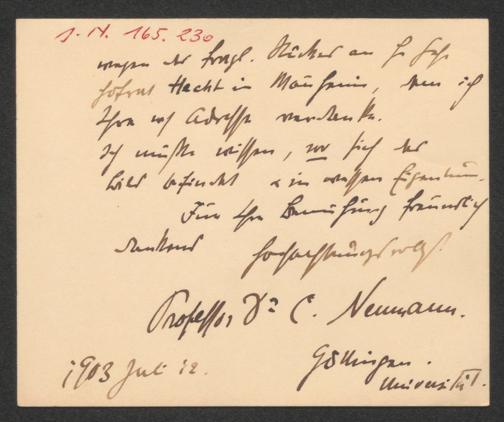 J. N. 165.230
wegen der fragl. Stückes an H Geh.
Hofrat Hecht in Mannheim, dem ich
Ihre w Adresse verdanke.
Ich müßte wissen, wo sich das
Bild befindet & in wessen Eigentum.
Für Ihre Bemühung freundlich
dankend hochachtungsvollst
Professor Dr C. Neumann.
1903 Juli 12.
Göttingen.
Universität.